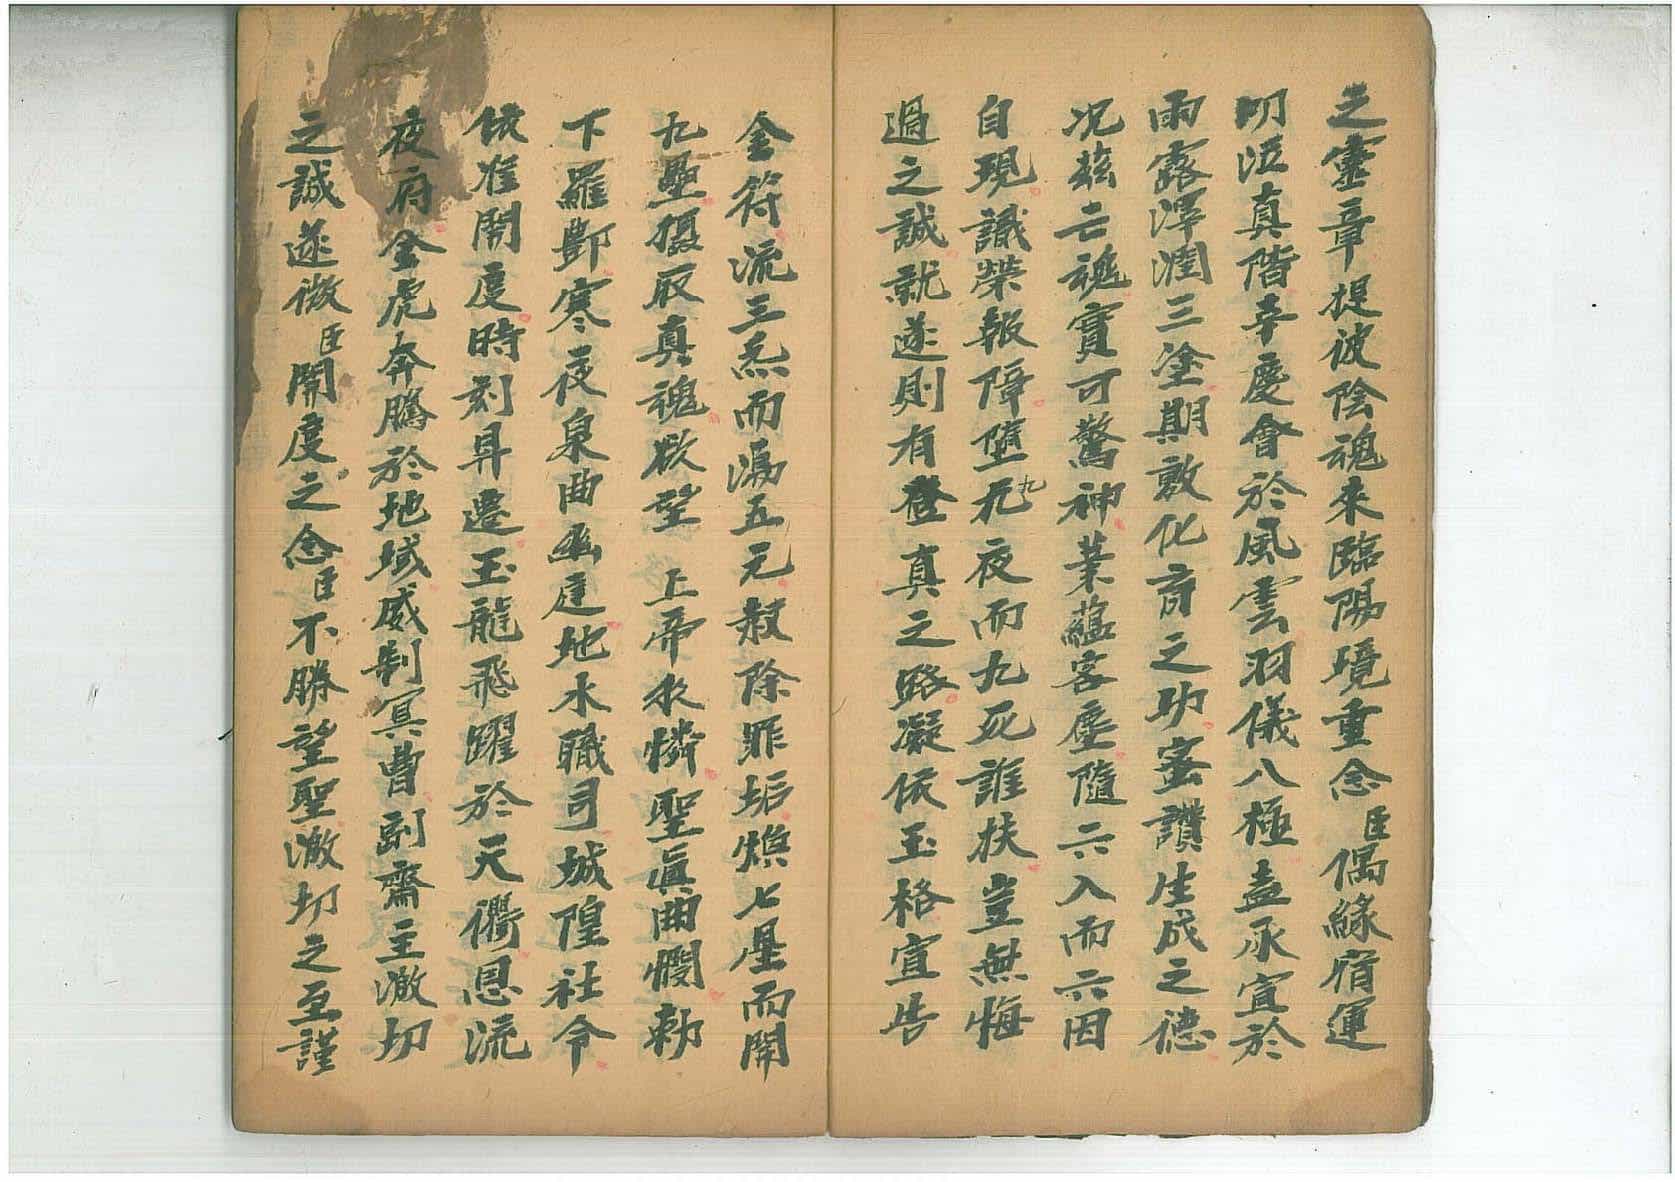 之靈章提彼陰魂来臨陽境重念臣偶緣宿運
叨涖真階幸慶會於風雲羽儀八極盍承宣於
雨露澤潤三塗期敦化育之功蜜讚生成之德
况兹亡魂實可驚神業蘊客塵隨六入而六因
自現識榮報障墮九夜而九死誰扶豈無悔
過之誠就遂則有登真之路凝依玉格宣告
金符流三炁而瀉五元赦除罪垢煥七星而開
九壘摄取真魂欲望上帝永憐聖眞曲憫勅
下羅酆寒夜泉曲幽庭地水職司城隍社令
依准開度時刻昇遷玉龍飛躍於天衢恩流
夜府金虎奔騰於地域威制冥曹副齋主激切
之誠遂微臣開度之念臣不勝望聖激切之至謹